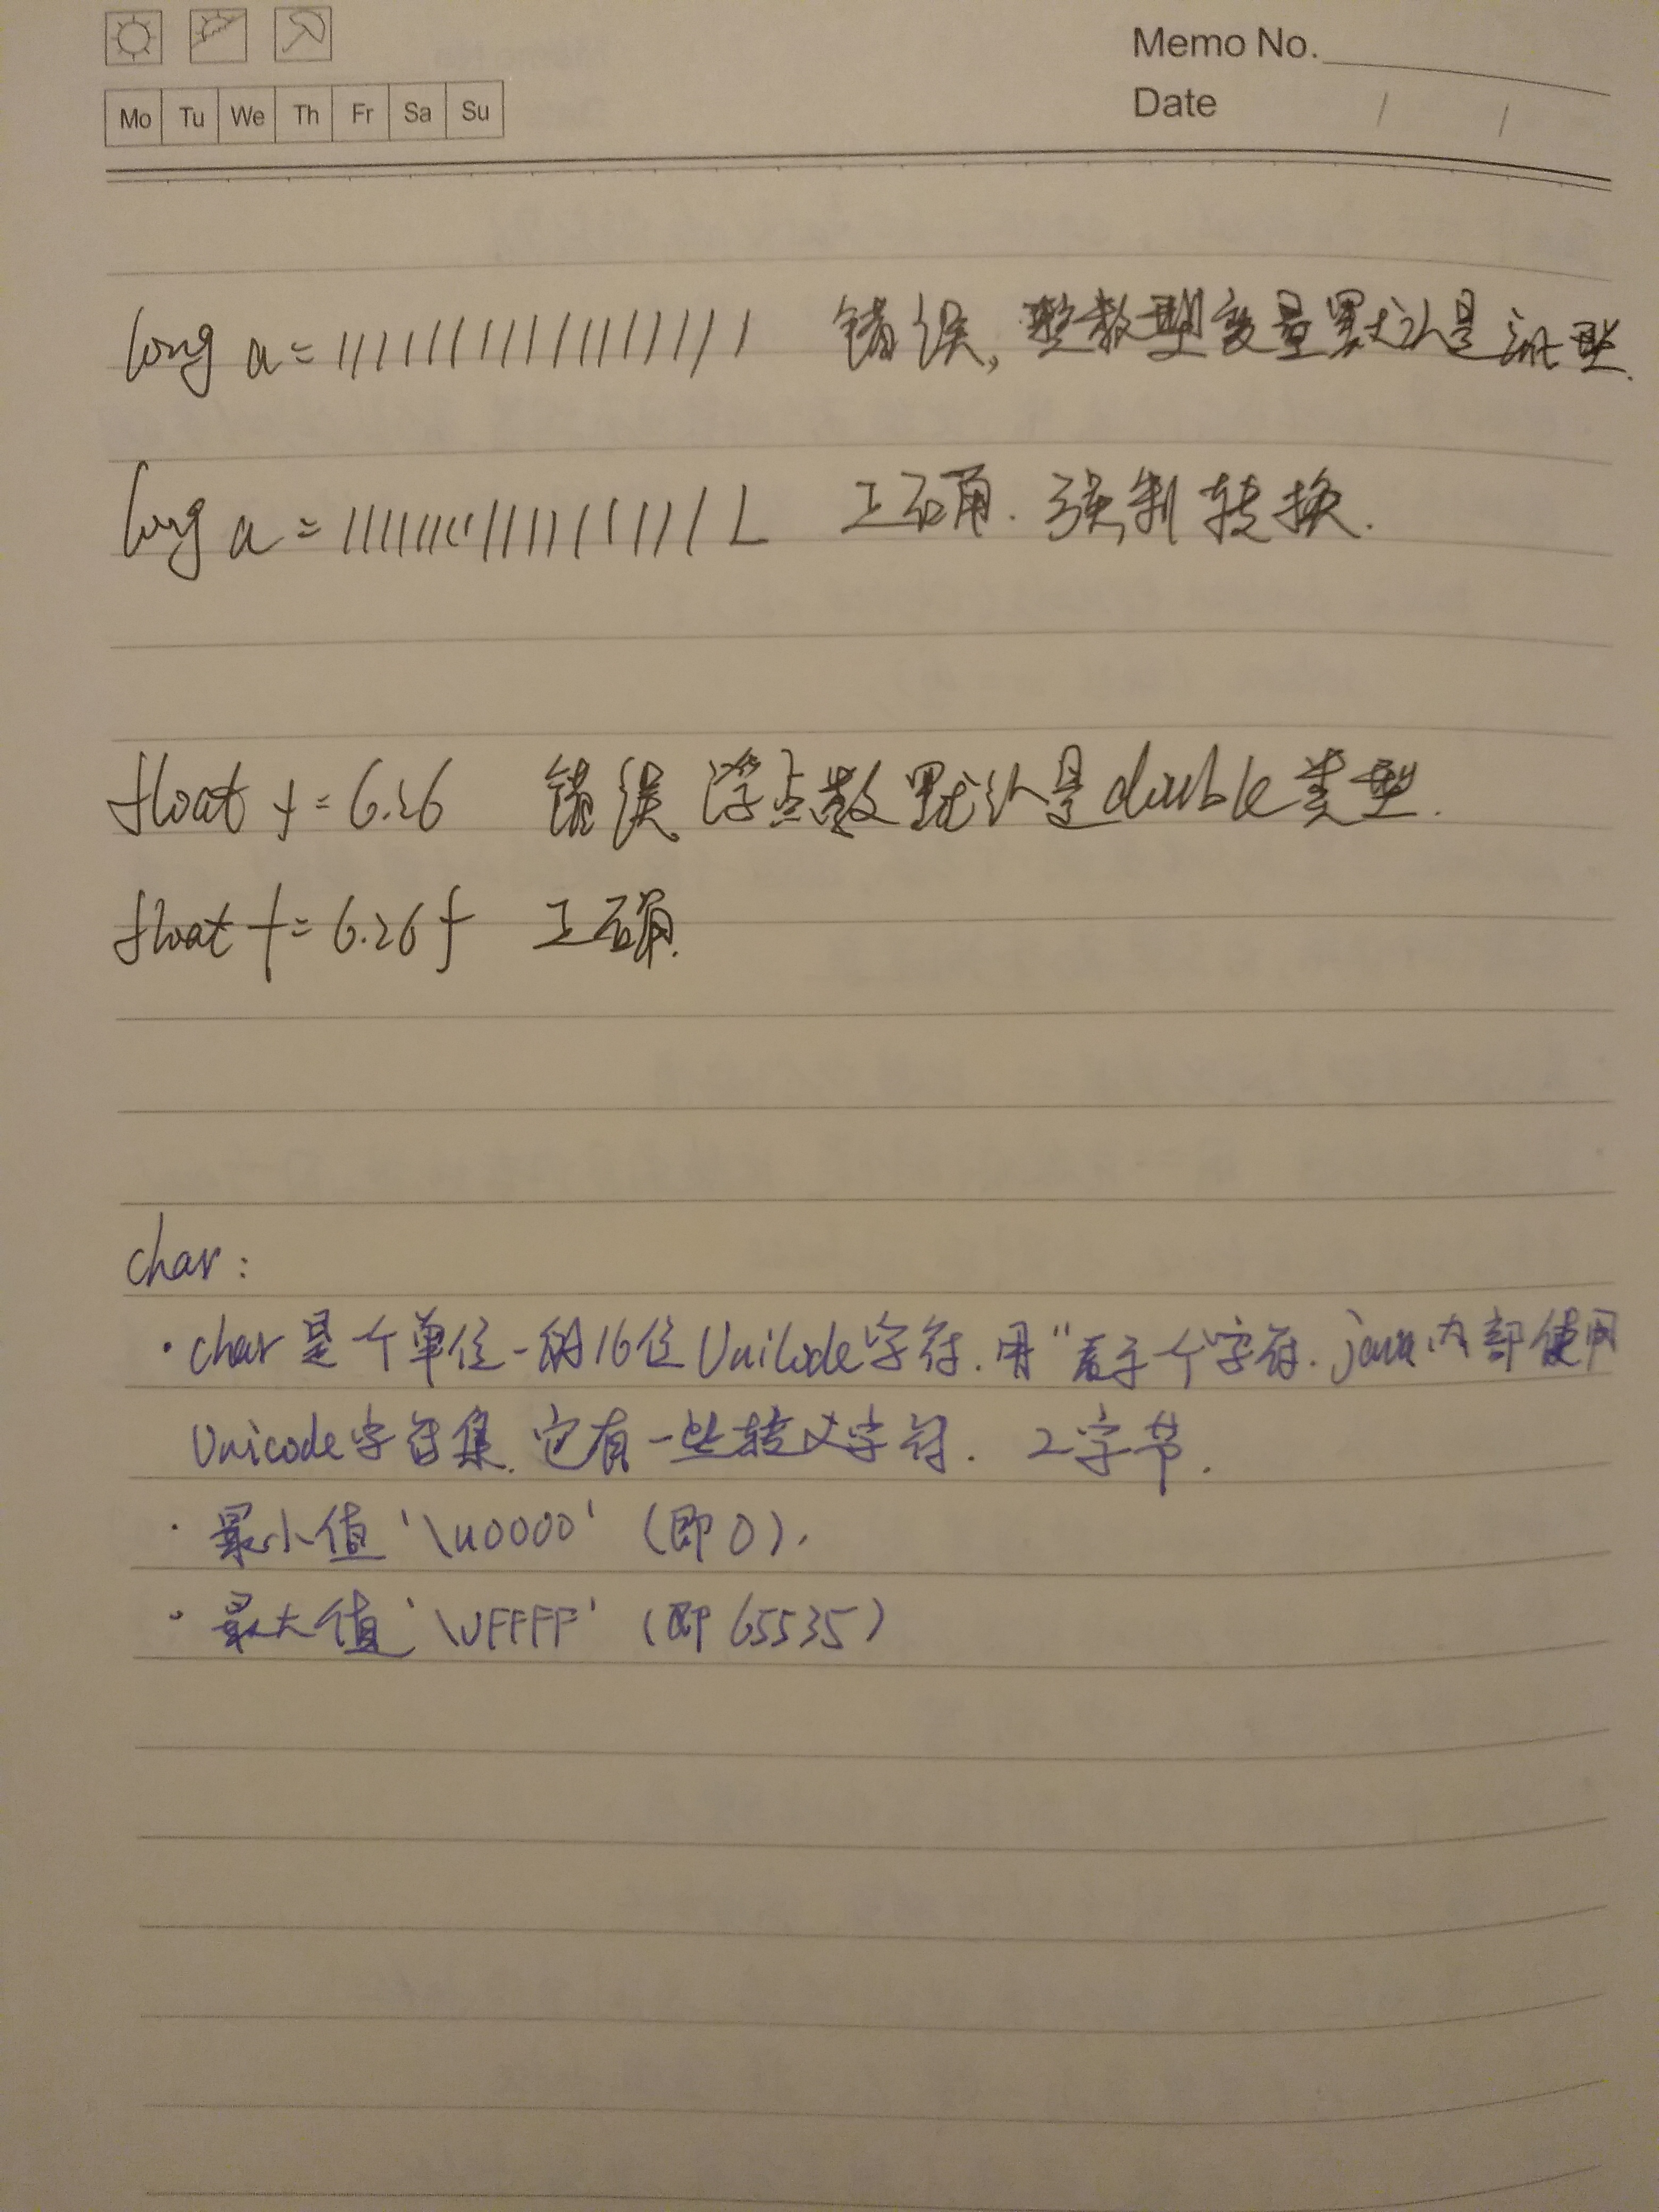 Memo No.
Date / /
Mo Tu We Th Fr Sa Su
long a = 11111111111111111 错误,整数型变量默认是int型.
long a = 1111111111111111L 正确.强制转换.
float f = 6.26 错误 浮点数默认是double类型.
float f = 6.26f 正确.
char:
·char是个单位一的16位Unicode字符.用''表示一个字符.java内部使用
Unicode字符集.它有一些转义字符. 2字节.
·最小值'\u0000' (即0).
·最大值'\uFFFF' (即65535)